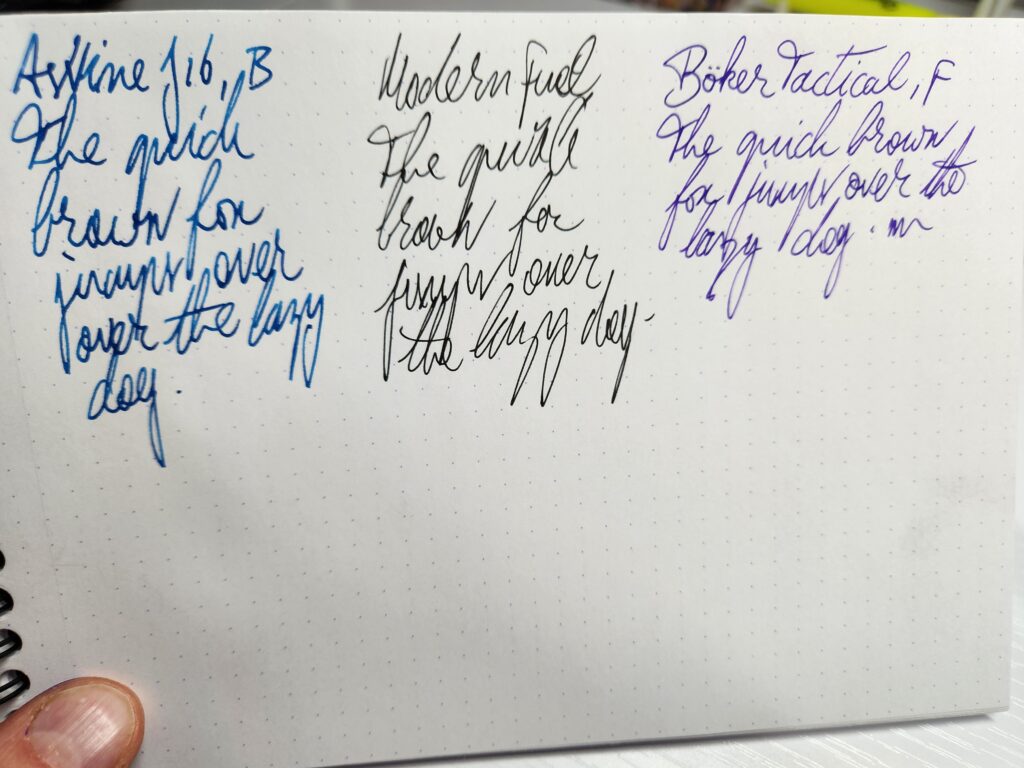 Astine J16, B
The quick
brown fox
jumps over
over the lazy
dog.
Modern Fuel,
The quick
brown fox
jumps over
the lazy dog.
Böker Tactical, F
The quick brown
fox jumps over the
lazy dog.